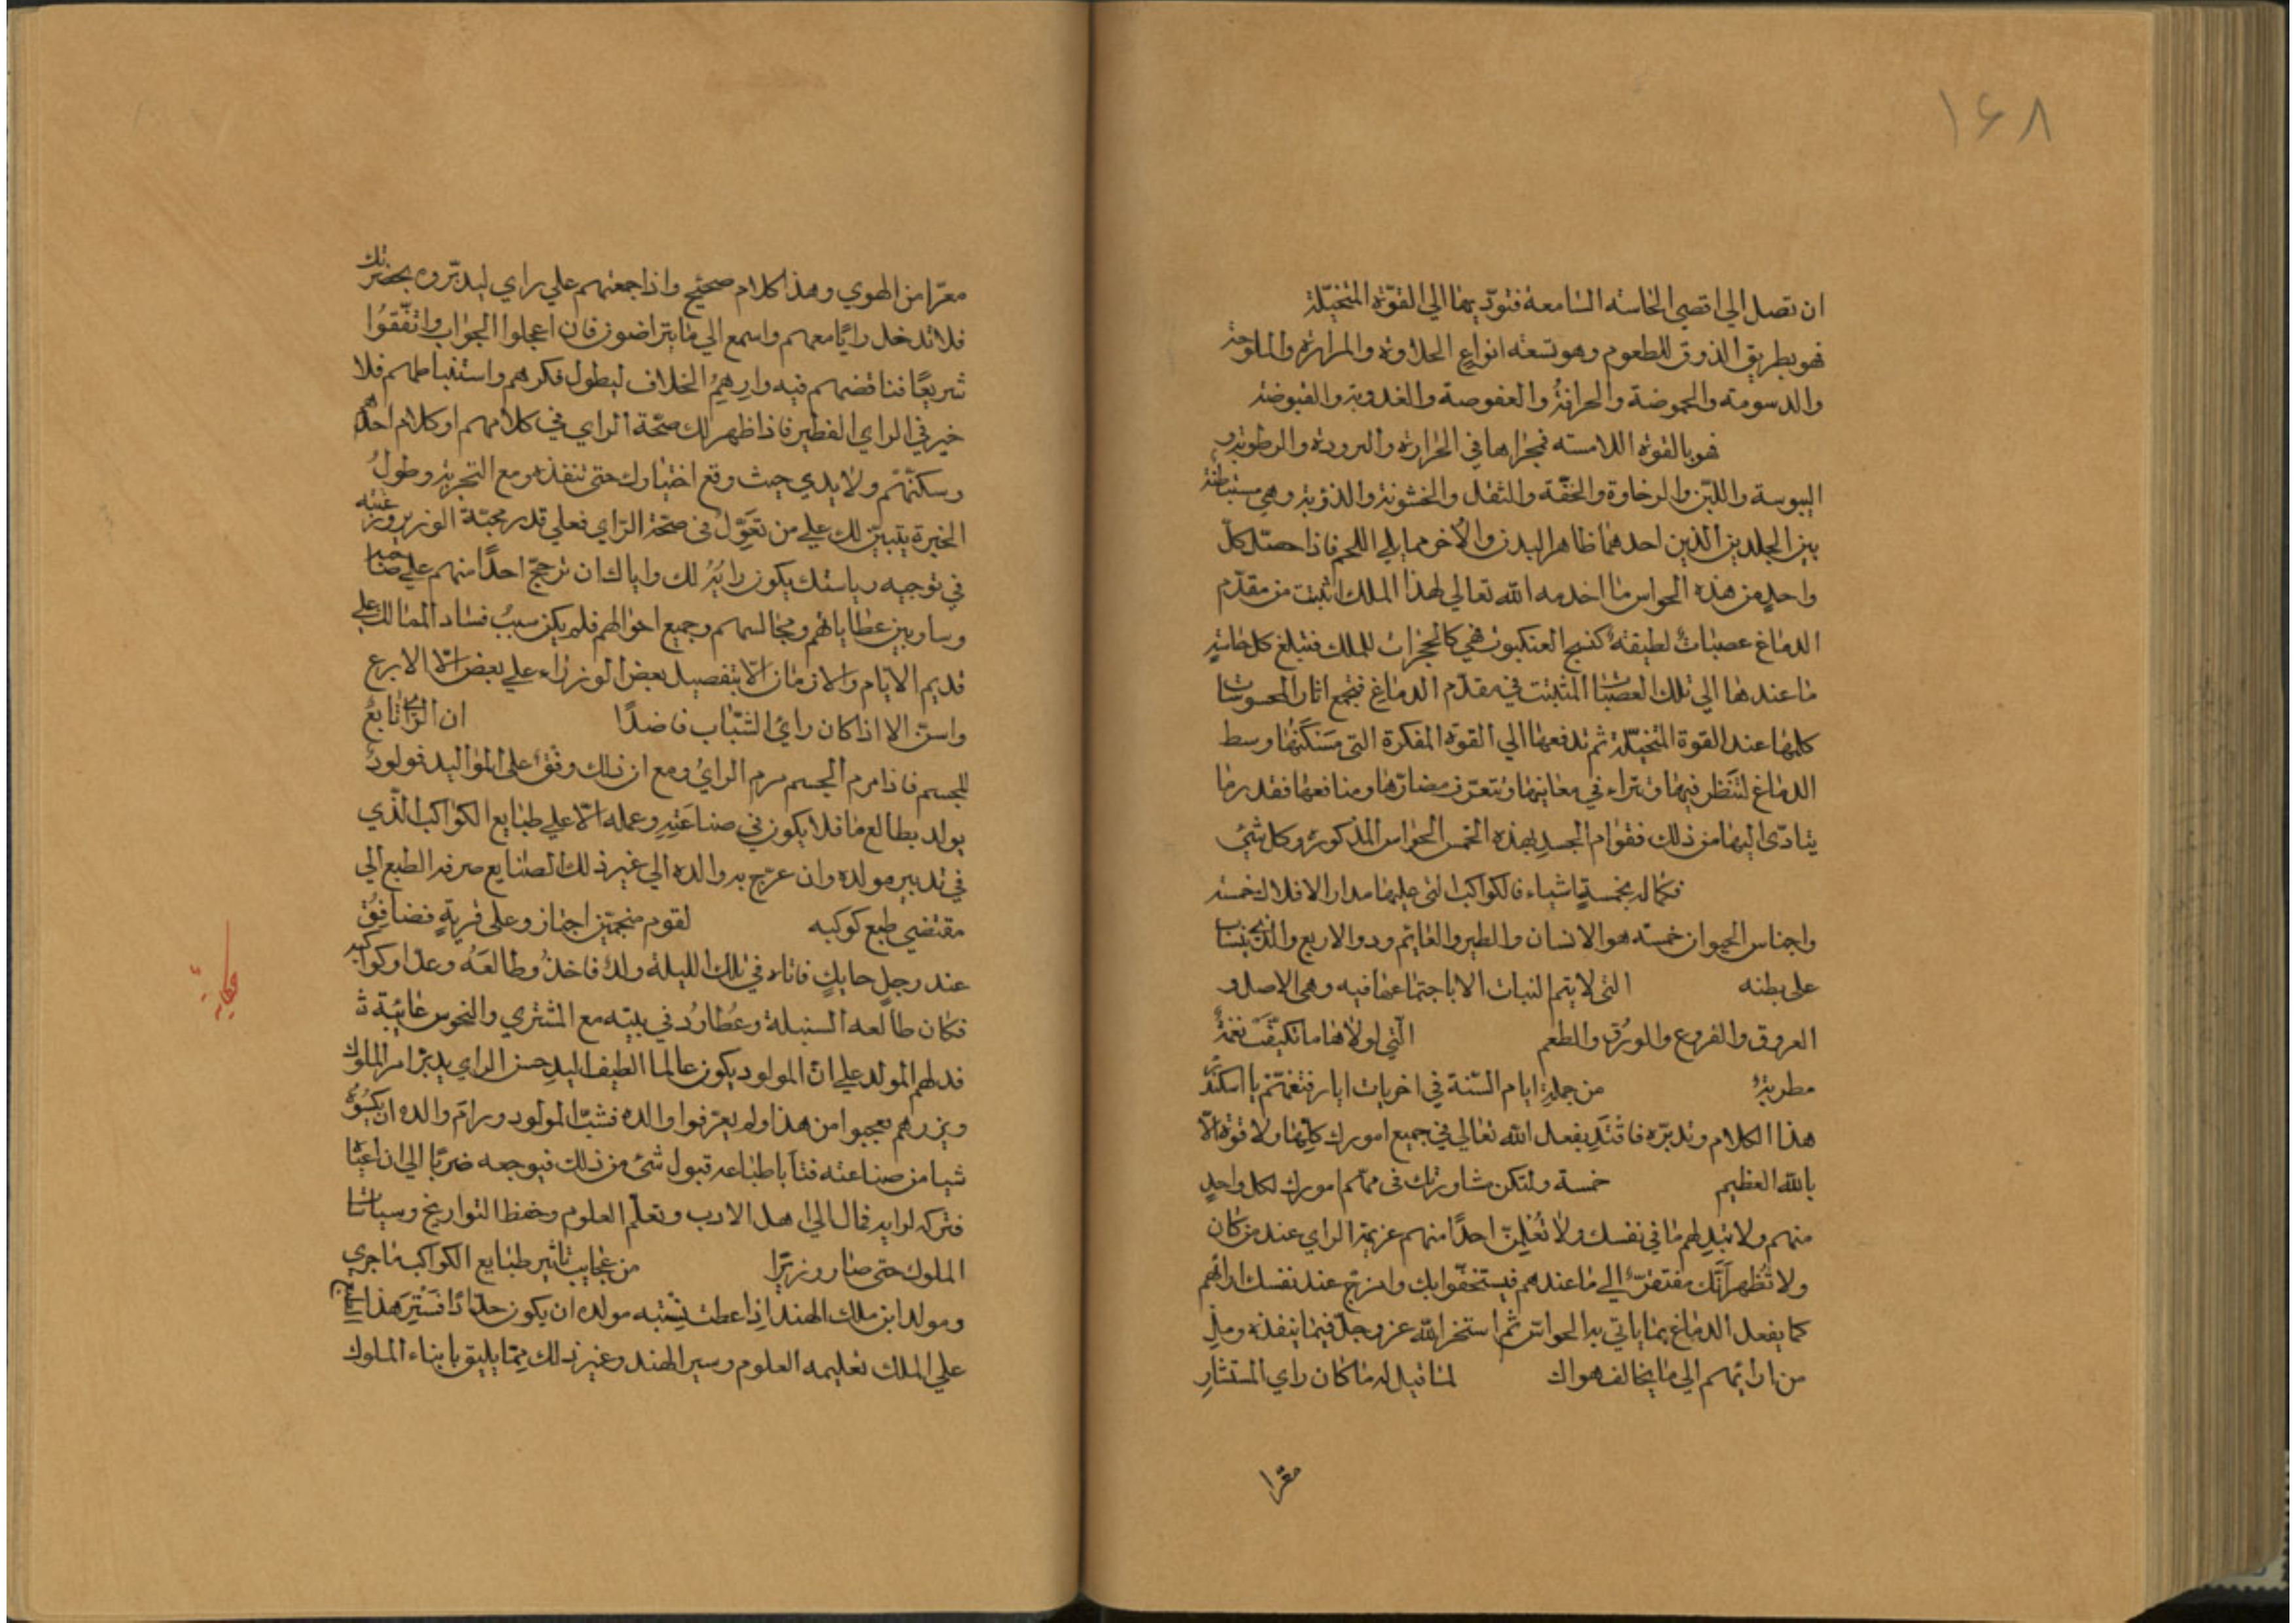 ١٦٨
ان تصل الي اقصي الحاسه السامعة فتودّيها الي القوّة المتخيّلة
فهو بطريق الذوق للطعوم وهو تسعة انواع الحلاوة والمرارة والملوحة
والدسومة والحموضة والحرافة والعفوصة والعذوبة والقبوضة
فهو بالقوة اللامسة فمجراها في الحرارة والبرودة والرطوبة و
اليبوسة واللين والرخاوة والخفّة والثقل والخشونة وهي مستبطنة
بين الجلدين الذين احدهما ظاهر البدن والآخر مما يلي اللحم فاذا حصّل كلّ
واحدٍ من هذه الحواس ما اخدمه الله تعالي لهذا الملك انبتت من مقدّم
الدماغ عصبات لطيفة كنسج العنكبوت فهي كالحجرات للملك فتبلغ كل حاسةٍ
ما عندها الي تلك العصبات المثبتت في مقدّم الدماغ فتجمع اثار المحسوسات
كلها عند القوة المتخيّلة ثم تدفعها الي القوة المفكرة التي مسكنها وسط
الدماغ لتنظر فيها وتتراء في معانيها وتتعرّف مضارّها ومنافعها فقدر ما
يتادّى اليها من ذلك فقوام الجسد بهذه الخمس الحواس المذكورة وكل شيء
فكماله بخمسة اشياء فالكواكب التي عليها مدار الافلاك خمسة
واجناس الحيوان خمسة هو الانسان والطير والعايم وذو الاربع والذي ينساب
على بطنه التي لا يتم النبات الا باجتماعها فيه وهي الاصل و
العروق والفروع والورق والطعم الّتي لولاها ما تكيّفت نغمةٌ
مطربةٌ من جملة ايام السّنة في اخريات ايار فتغتنم يا اسكندر
هذا الكلام وتدبّره فاقتد بفعل الله تعالي في جميع امورك كلّها ولا قوة الّا
بالله العظيم خمسة ولتكن مشاورتك في مهم امورك لكل واحدٍ
منهم ولا تبد لهم ما في نفسك ولا تُعلمنّ احدًا منهم عزيمة الراي عند من كان
ولا تُظهر أنّك مفتقرٌ الي ما عندهم فيستخفّوا بك وامزج عند نفسك اراءهم
كما يفعل الدماغ بما ياتي به الحواس ثم استخر الله عز وجلّ فيما ينفذه ومل
من ارائهم الي ما يخالف هواك لما قيل له ما كان راي المستشار
معرّا
معرّا من الهوي وهذا كلام صحيح واذا جمعتهم علي راي ليدبّروه بحضرتك
فلا تدخل رايًا معهم واسمع الي ما يتراضون فان اعجلوا الجواب واتفّقوا
سريعًا فناقضهم فيه وارهم الخلاف ليطول فكرهم واستنباطهم فلا
خير في الراي الفطير فاذا ظهر لك صحّة الراي في كلامهم او كلام احدهم
وسكتهم ولا يدي حيث وقع اختيارك حتى تنفذه ومع التجربة وطول
الخبرة يتبيّن لك علي من تعوّل في صحّة الرّاي فعلي قدر محبّة الوزير ورغبته
في توجيه رياستك يكون رايه لك واياك ان ترجّح احدًا منهم علي صاحبه
وساو بين عطاياهم ومجالسهم وجميع احوالهم فلم يكن سبب فساد الممالك علي
قديم الايام والازمان الّا بتفضيل بعض الوزراء علي بعض الا الابرع
واسنّ الا اذا كان رايُ الشباب فاضلًا ان الراي تابعٌ
للجسم فاذا هرم الجسم هرم الرايُ ومع ان ذلك وقف على المواليد فمولودٌ
يولد بطالع ما فلا يكون في صناعته وعمله الّا علي طبايع الكواكب الّذي
في تدبير مولده وان عرّج به والده الي غير ذلك الصنايع صرفه الطبع الي
مقتضي طبع كوكبه لقوم منجمين اجتازوا على قرية فضافوا
عند رجل حايكٍ فاتاه في تلك الليلة ولدٌ فاخذوا طالعه وعدّلوا كواكبه
فكان طالعه السنبلة وعطارد في بيته مع المشتري والنحوس غائبة
فدلهم المولد علي انّ المولود يكون عالما لطيف اليد حسن الراي يدبّر امر الملوك
ويزرهم فعجبوا من هذا ولم يعرّفوا والده فشبّ المولود ورام والده ان يكسبه
شيا من صناعته فتأبا طباعه قبول شئ من ذلك فيوجعه ضربًا الي ان اعيا
فتركه لرايه فمال الي اهل الادب وتعلّم العلوم وحفظ التواريخ وسياسات
الملوك حتى صار وزيرًا من عجايب تاثير طبايع الكواكب ما جري
ومولد ابن ملك الهند اذ اعطت نسبته مولده ان يكون حدّادًا فستر هذا
علي الملك تعليمه العلوم وسير الهند وغير ذلك ممّا يليق بابناء الملوك
حكاية